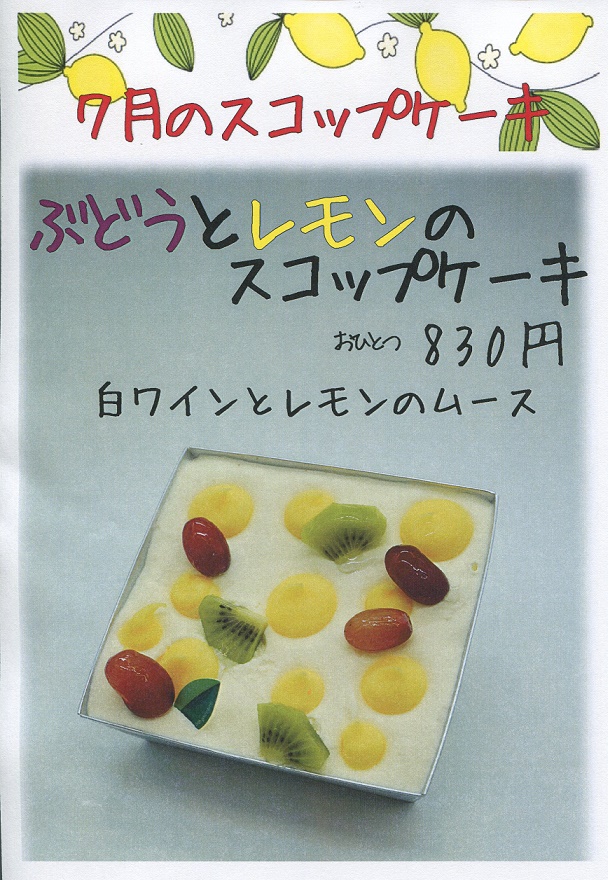 7月のスコップケーキ
ぶどうとレモンの
スコップケーキ
おひとつ 830円
白ワインとレモンのムース